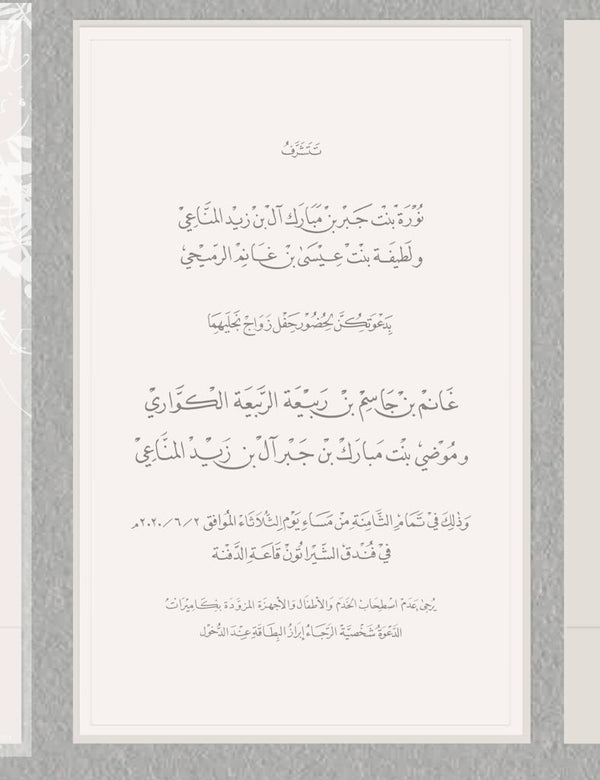 تَتَشَرَّفُ
نُوْرَة بنْت جَبْر بنْ مُبَارَك آل بنْ زيد المنَّاعِيْ
ولَطِيفَة بنْت عِيْسَىٰ بنْ غَانِمْ الرمَيْحِيْ
بِدَعْوَتِكُنَّ لِحُضُوْر حَفْل زَوَاجْ نَجْلَيْهِمَا
غَانِمْ بنْ جَاسِمْ بنْ رَبِيْعَة الرَّبيْعَة الكوَّاريْ
ومُوْضِيْ بنْت مبَارَكْ بنْ جَبْر آل بن زَيْد المنَّاعِيْ
وَذٰلِكَ فيْ تَمَامِ الثَّامِنَةِ مِنْ مَسَاءِ يَوْمِ الثُّلَاثَاءْ المُوَافِق ٢٠٢٠/٦/٢م
فيْ فُنْدقْ الشِّيْرَاتُوْن قَاعَة الدَّفْنَة
يُرجىٰ عَدَمْ اصْطِحَابْ الخَدَم وَالأطْفَال وَالأجْهِزَة المزوَّدَة بكَاميْرَات
الدَّعْوَةُ شَخْصِيَّة الرَّجَاءْ إِبْرَازُ البِطَاقَةِ عِنْدَ الدُّخوْل